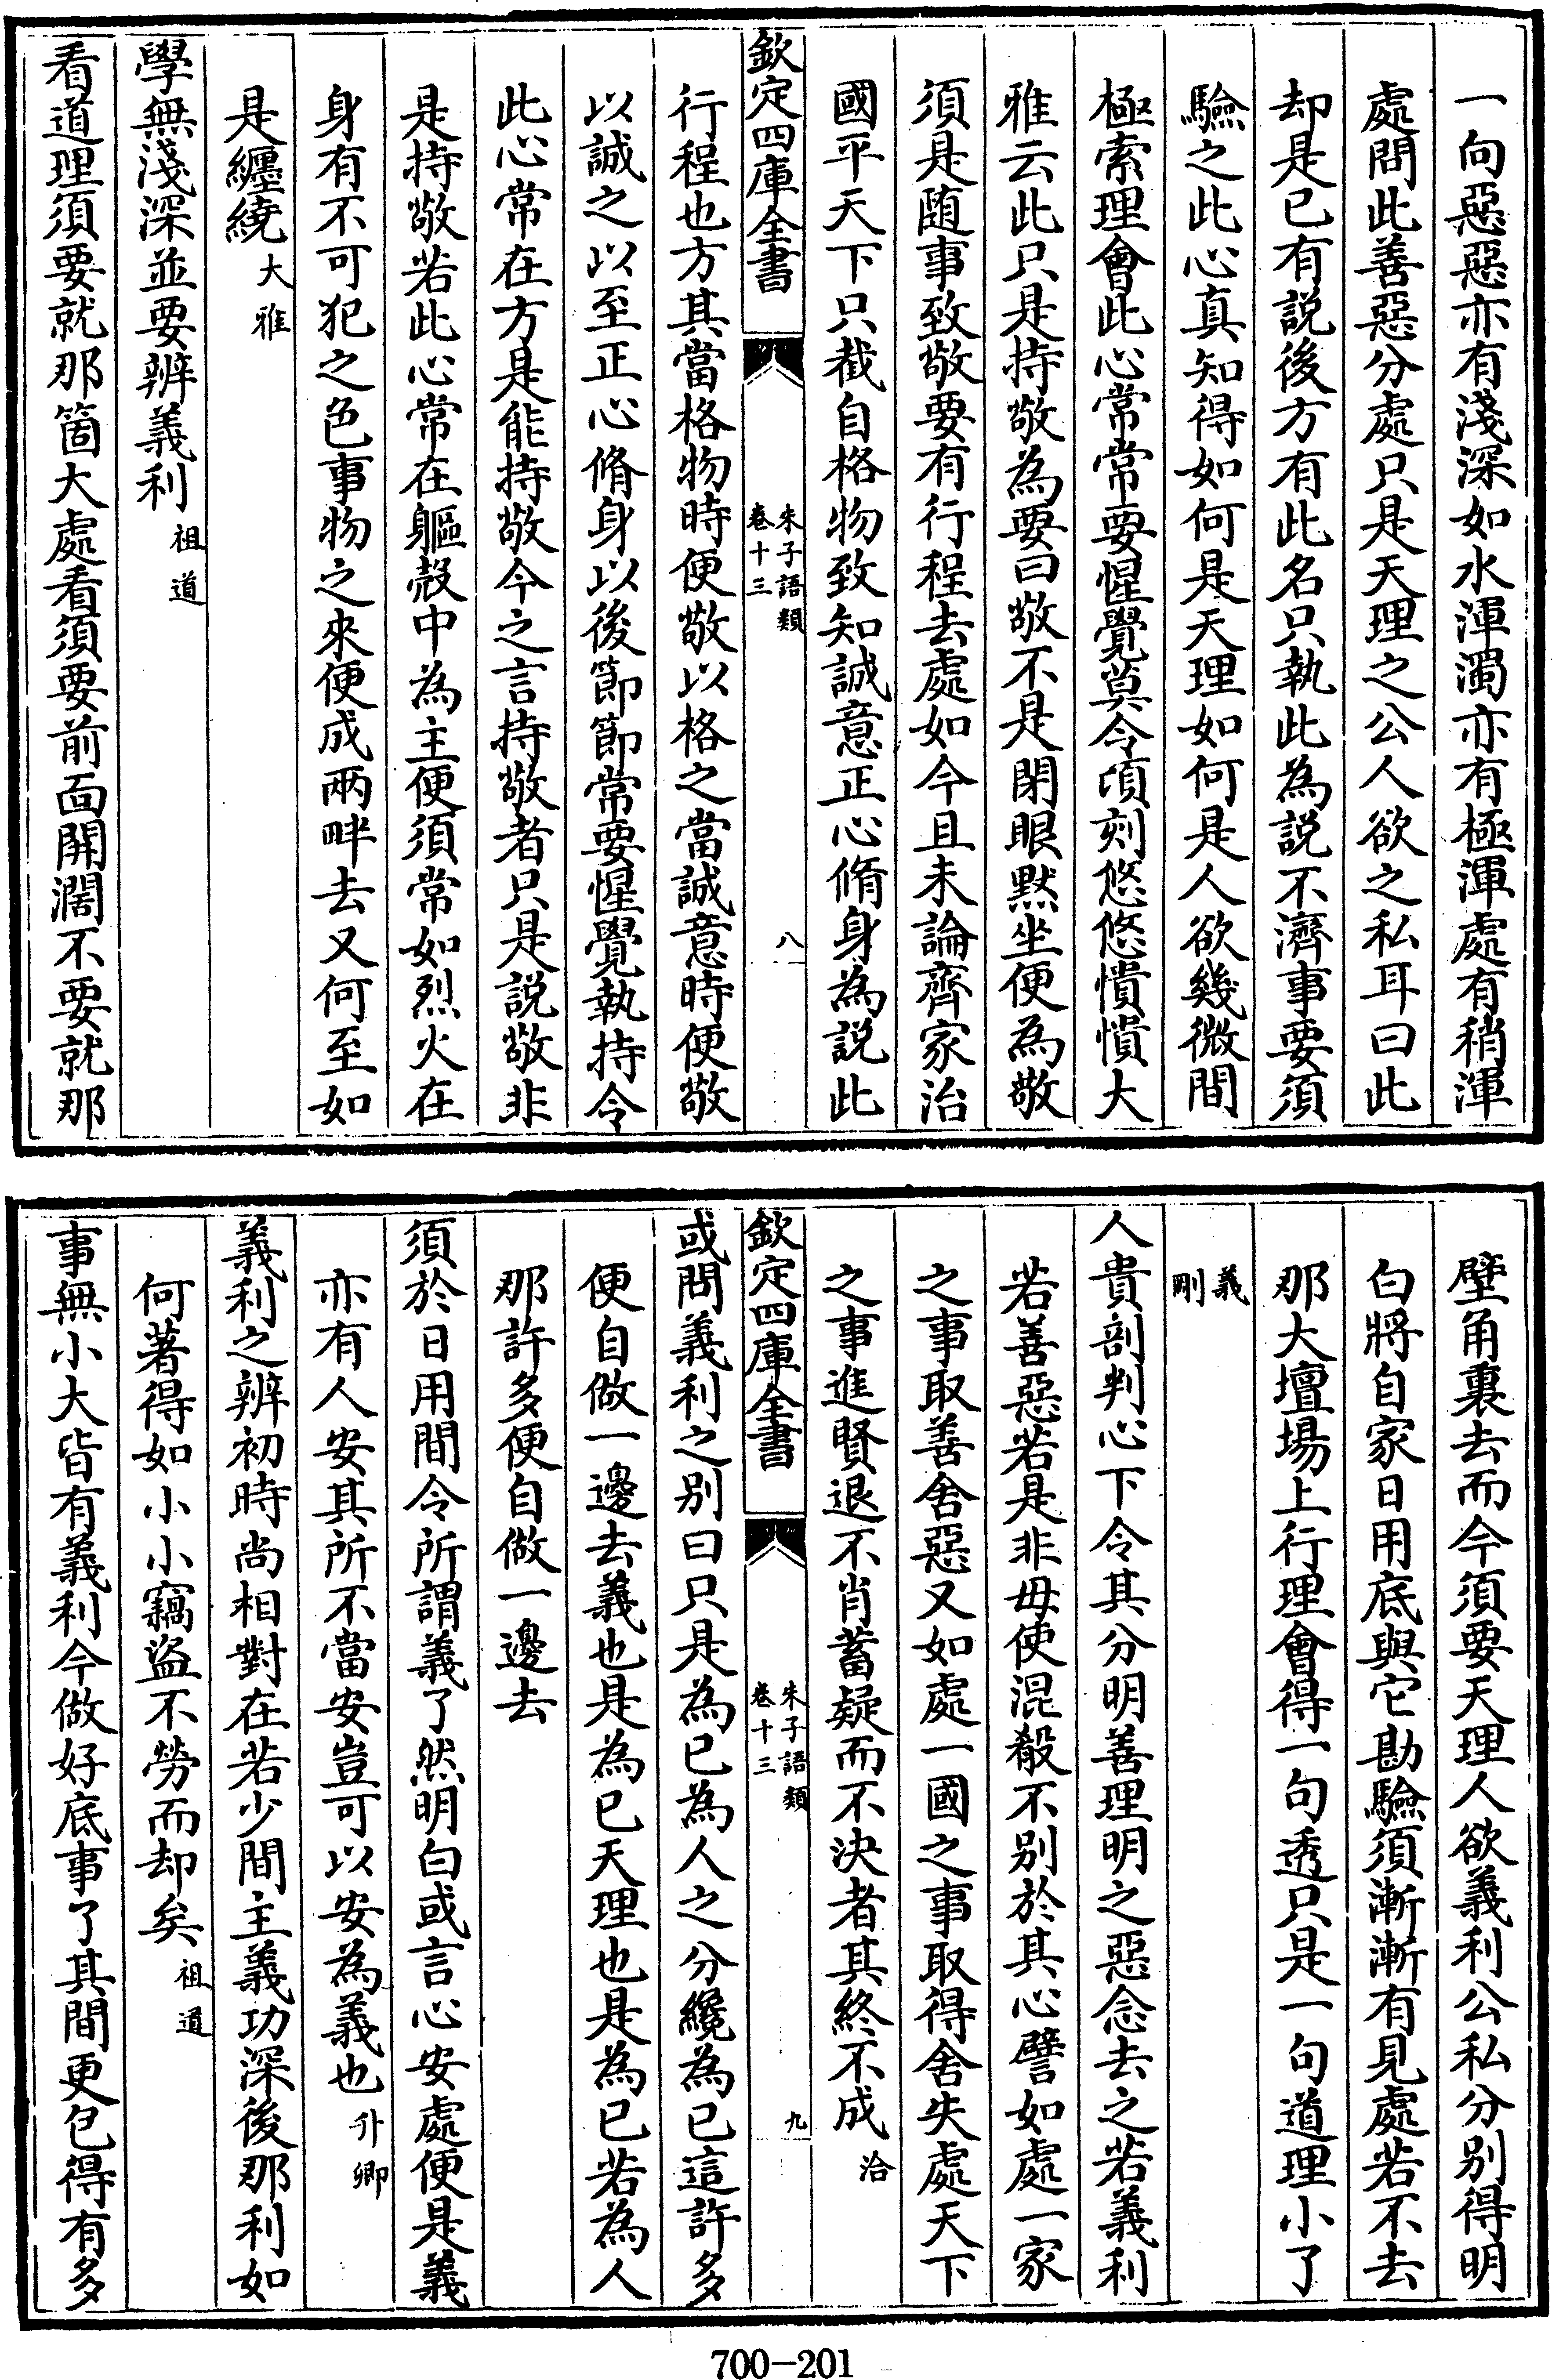 一向惡惡亦有淺深如水渾濁亦有極渾處有稍渾
處問此善惡分處只是天理之公人欲之私耳曰此
却是已有説後方有此名只執此為説不濟事要須
驗之此心真知得如何是天理如何是人欲幾微間
極索理會此心常常要惺覺莫令頃刻悠悠憒憒大
雅云此只是持敬為要曰敬不是閉眼默坐便為敬
須是隨事致敬要有行程去處如今且未論齊家治
國平天下只截自格物致知誠意正心脩身為説此
欽定四庫全書
朱子語類
卷十三
八
行程也方其當格物時便敬以格之當誠意時便敬
以誠之以至正心脩身以後節節常要惺覺執持令
此心常在方是能持敬今之言持敬者只是説敬非
是持敬若此心常在軀殼中為主便須常如烈火在
身有不可犯之色事物之來便成兩畔去又何至如
是纏繞大雅
學無淺深並要辨義利祖道
看道理須要就那箇大處看須要前面開濶不要就那
壁角裏去而今須要天理人欲義利公私分别得明
白將自家日用底與它勘驗須漸漸有見處若不去
那大壇場上行理會得一句透只是一句道理小了
義剛
人貴剖判心下令其分明善理明之惡念去之若義利
若善惡若是非毋使混殽不别於其心譬如處一家
之事取善舍惡又如處一國之事取得舍失處天下
之事進賢退不肖蓄疑而不決者其終不成洽
欽定四庫全書
朱子語類
卷十三
九
或問義利之别曰只是為已為人之分纔為已這許多
便自做一邊去義也是為已天理也是為已若為人
那許多便自做一邊去
須於日用間令所謂義了然明白或言心安處便是義
亦有人安其所不當安豈可以安為義也升卿
義利之辨初時尚相對在若少間主義功深後那利如
何著得如小小竊盜不勞而却矣祖道
事無小大皆有義利今做好底事了其間更包得有多
700-201